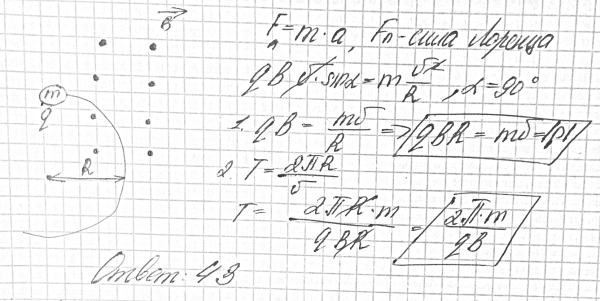 B
F = m·a, Fл - сила Лоренца
qB υ·sinα = m υ²/R, α = 90°
m
q
1. qB = mυ/R => qBR = mυ = |p|
R
2. T = 2πR/υ
T = 2πR·m/qBR = 2π·m/qB
Ответ: 43